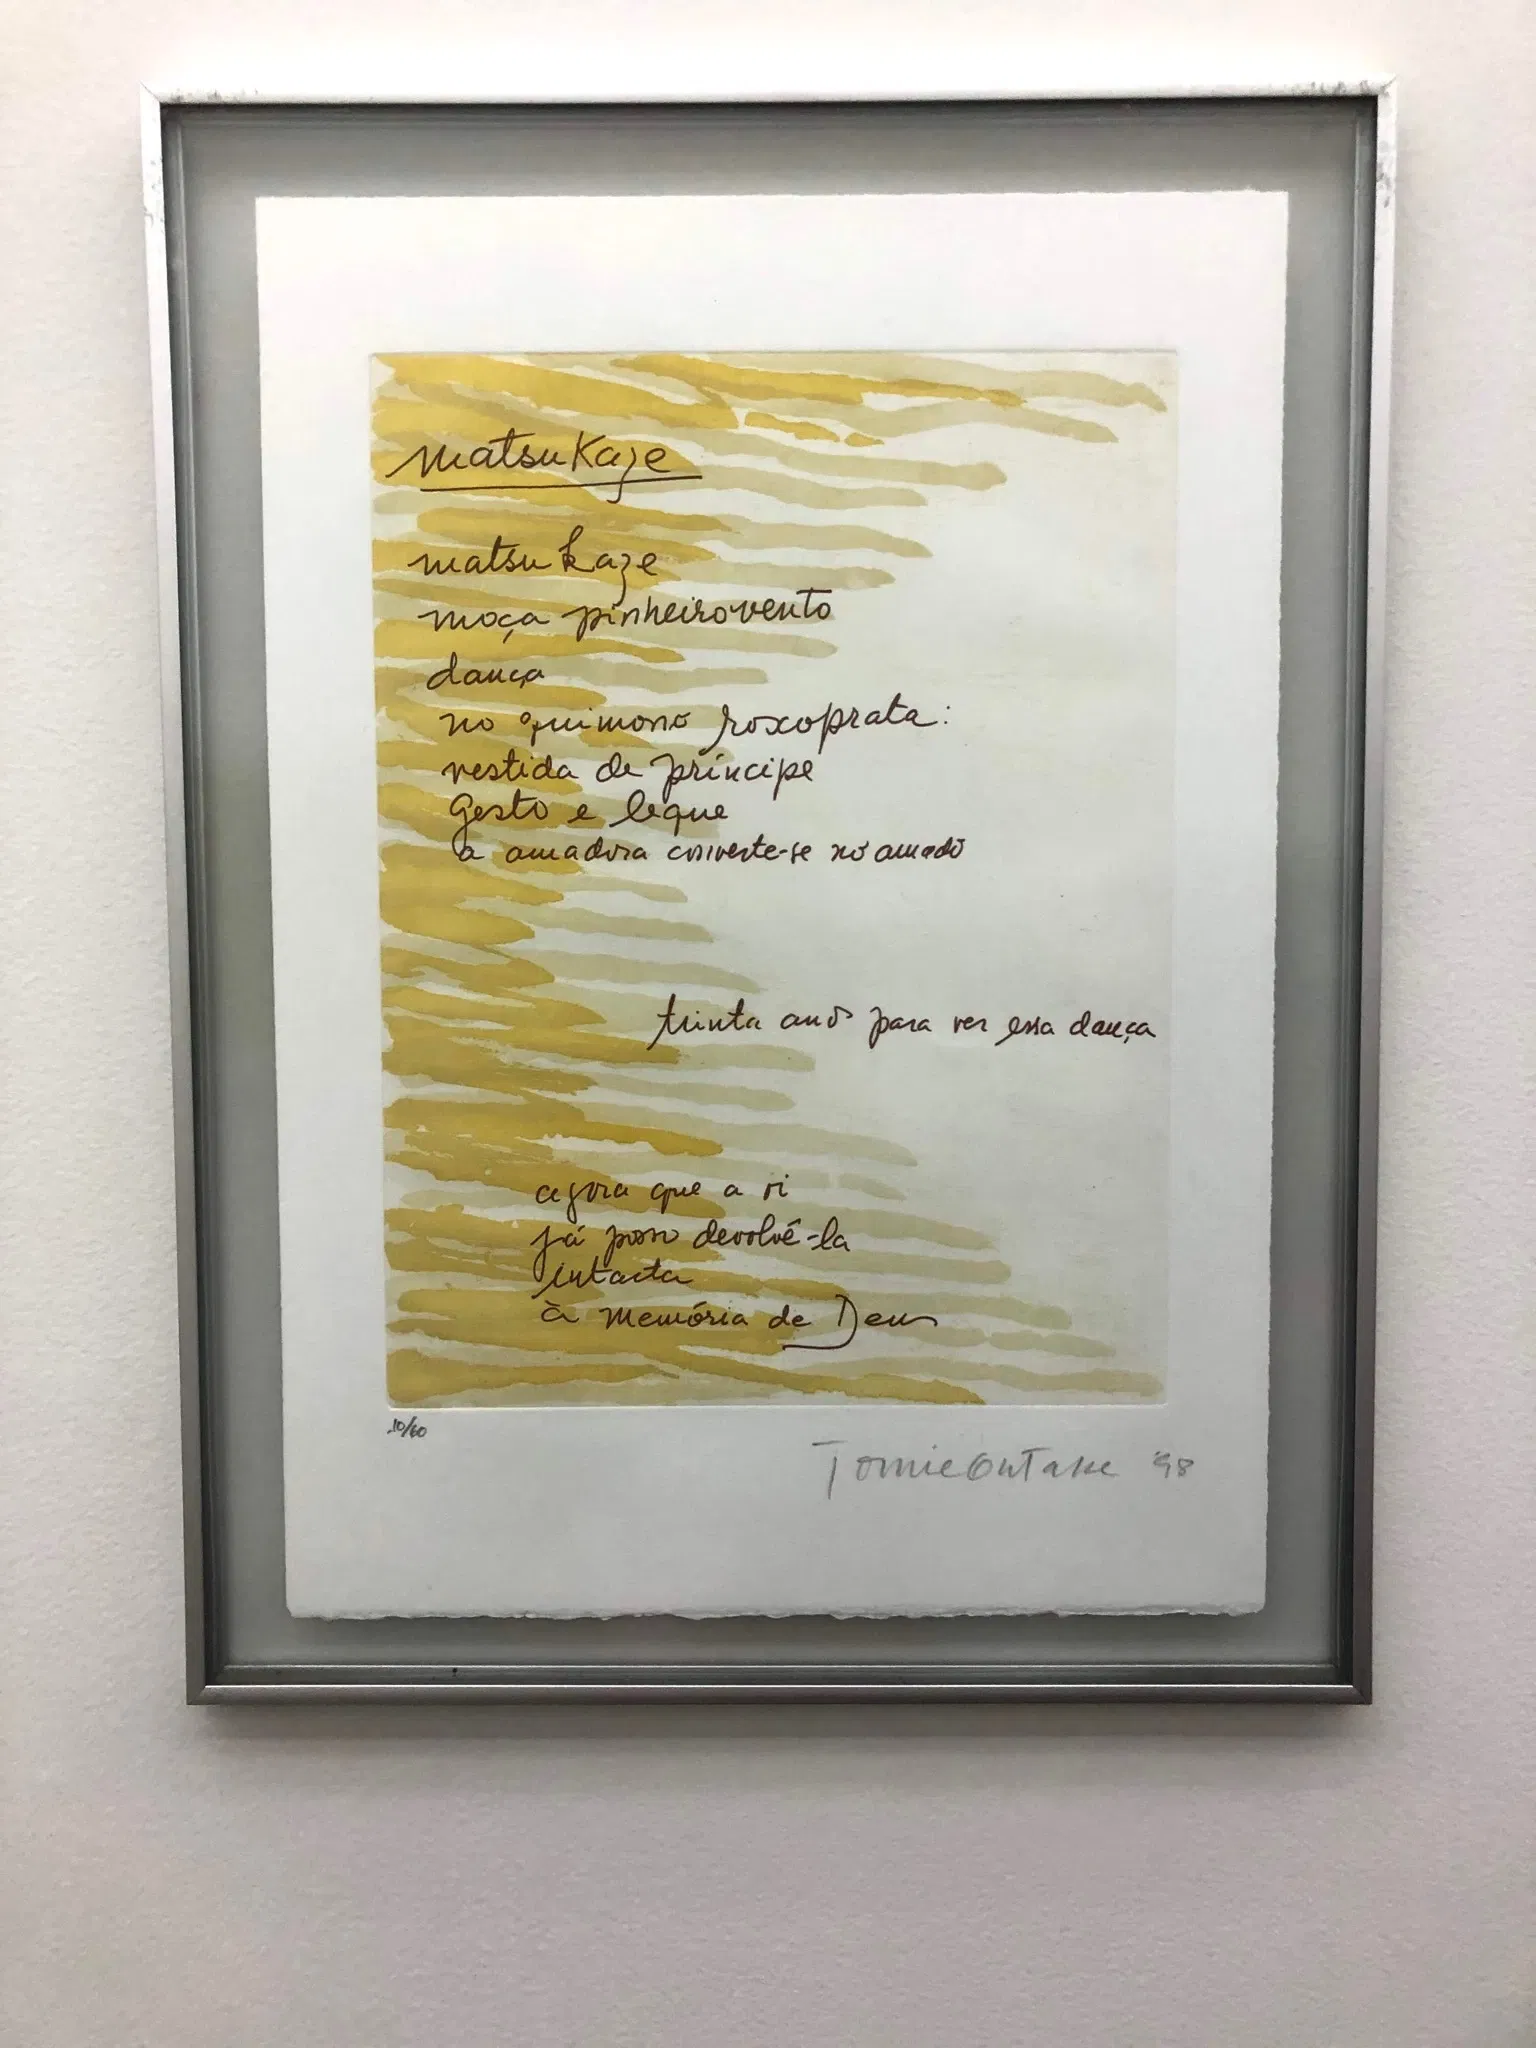 matsukaze
matsukaze
moça pinheirovento
dança
no quimono roxoprata:
vestida de príncipe
gesto e leque
a amadora converte-se no amado
trinta anos para ver essa dança
agora que a vi
já posso devolvê-la
intacta
à memória de Deus
10/60
Tomie Ohtake '98